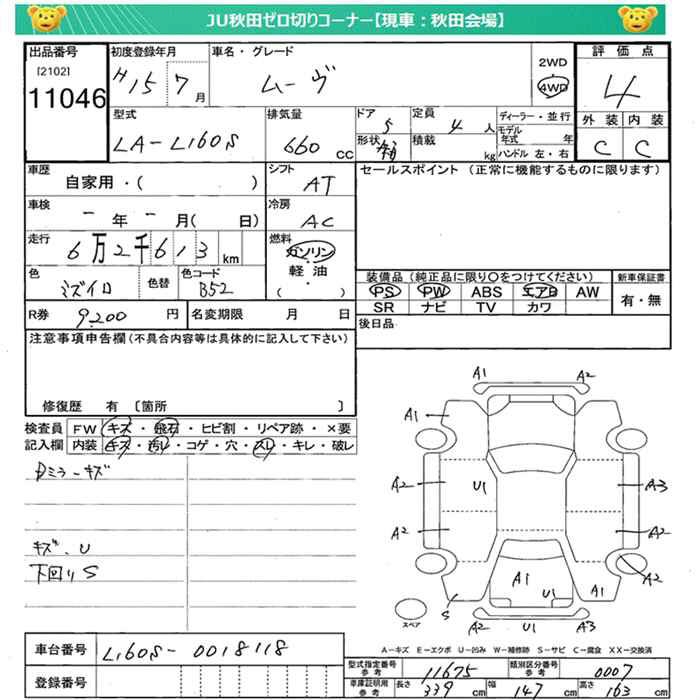 JU秋田ゼロ切りコーナー【現車：秋田会場】
出品番号 [2102] 11046
初度登録年月 H15 7月
車名・グレード ムーヴ
2WD 4WD
評価点 4
外装 C 内装 C
型式 LA-L160S
排気量 660 cc
ドア 5
形状
定員 4人
積載 kg
ディーラー・並行
モデル年式 年
ハンドル 左・右
車歴 自家用・( )
シフト AT
セールスポイント（正常に機能するものに限ります）
車検 ー年ー月( 日)
冷房 AC
走行 6万2千613km
燃料 ガソリン 軽油 ( )
色 ミズイロ
色替
色コード B52
装備品（純正品に限り○をつけてください）
PS PW ABS エアB AW
SR ナビ TV カワ
新車保証書 有・無
R券 9200円
名変期限 月 日
後日品
注意事項申告欄(不具合内容等は具体的に記入して下さい)
修復歴 有 〔箇所 〕
検査員記入欄
FW キズ・飛石・ヒビ割・リペア跡・×要
内装 キズ・汚レ・コゲ・穴・スレ・キレ・破レ
Dミラーキズ
キズ、U
下回りS
A1 A2
A1
A2 U1 A3
A2 A2
A1 U1 A1 A2
S
A2 A3
スペア
A－キズ E－エクボ U－凹み W－補修跡 S－サビ C－腐食 XX－交換済
車台番号 L160S-0018118
登録番号
型式指定番号 参考 11675
類別区分番号 参考 0007
車庫証明用 参考 長さ 339 cm 幅 147 cm 高さ 163 cm